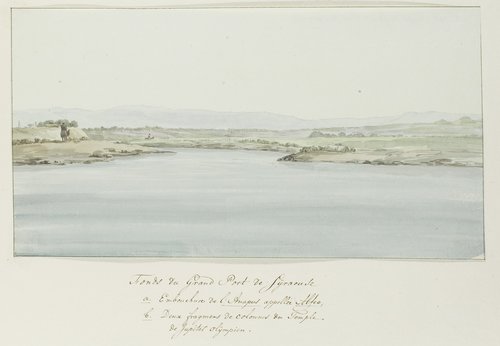 Fonds du Grand Port de Syracuse
a. Embouchure de l'Anapus appellée Alfeo,
b. Deux fragmens de colonnes du Temple.
de Jupiter olympien.